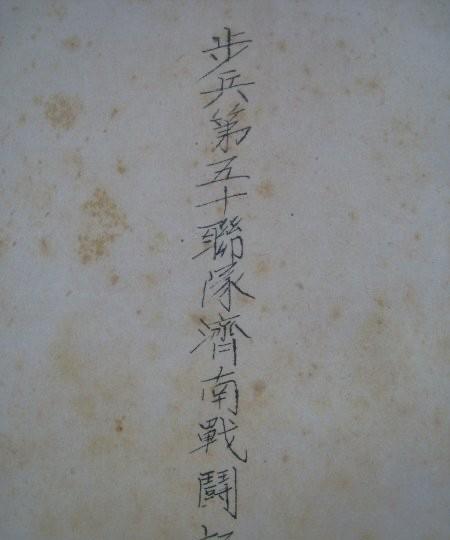 步兵第五十聯隊濟南戰鬪